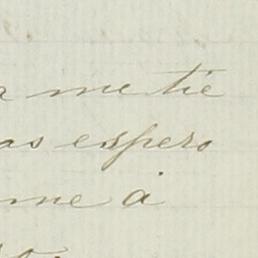 a me tie
as espero
me á